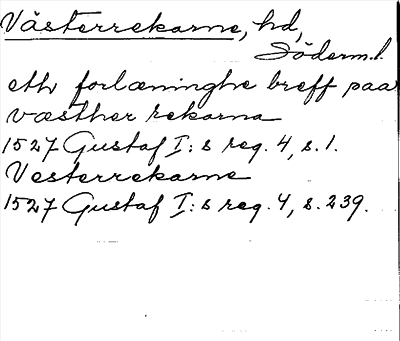 Västerrekarne, hd,
Söderml.
eth forlæninghe breff paa
væsther rekarna
1527 Gustaf I:s reg. 4, s. 1.
Vesterrekarne
1527 Gustaf I:s reg. 4, s. 239.